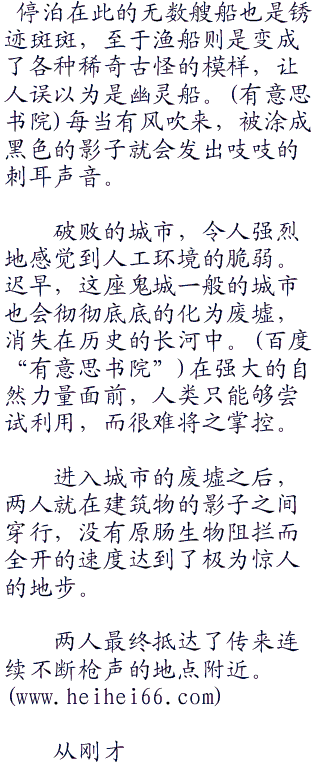 停泊在此的无数艘船也是锈
迹斑斑，至于渔船则是变成
了各种稀奇古怪的模样，让
人误以为是幽灵船。(有意思
书院)每当有风吹来，被涂成
黑色的影子就会发出吱吱的
刺耳声音。
破败的城市，令人强烈
地感觉到人工环境的脆弱。
迟早，这座鬼城一般的城市
也会彻彻底底的化为废墟，
消失在历史的长河中。(百度
“有意思书院”)在强大的自
然力量面前，人类只能够尝
试利用，而很难将之掌控。
进入城市的废墟之后，
两人就在建筑物的影子之间
穿行，没有原肠生物阻拦而
全开的速度达到了极为惊人
的地步。
两人最终抵达了传来连
续不断枪声的地点附近。
(www.heihei66.com)
从刚才